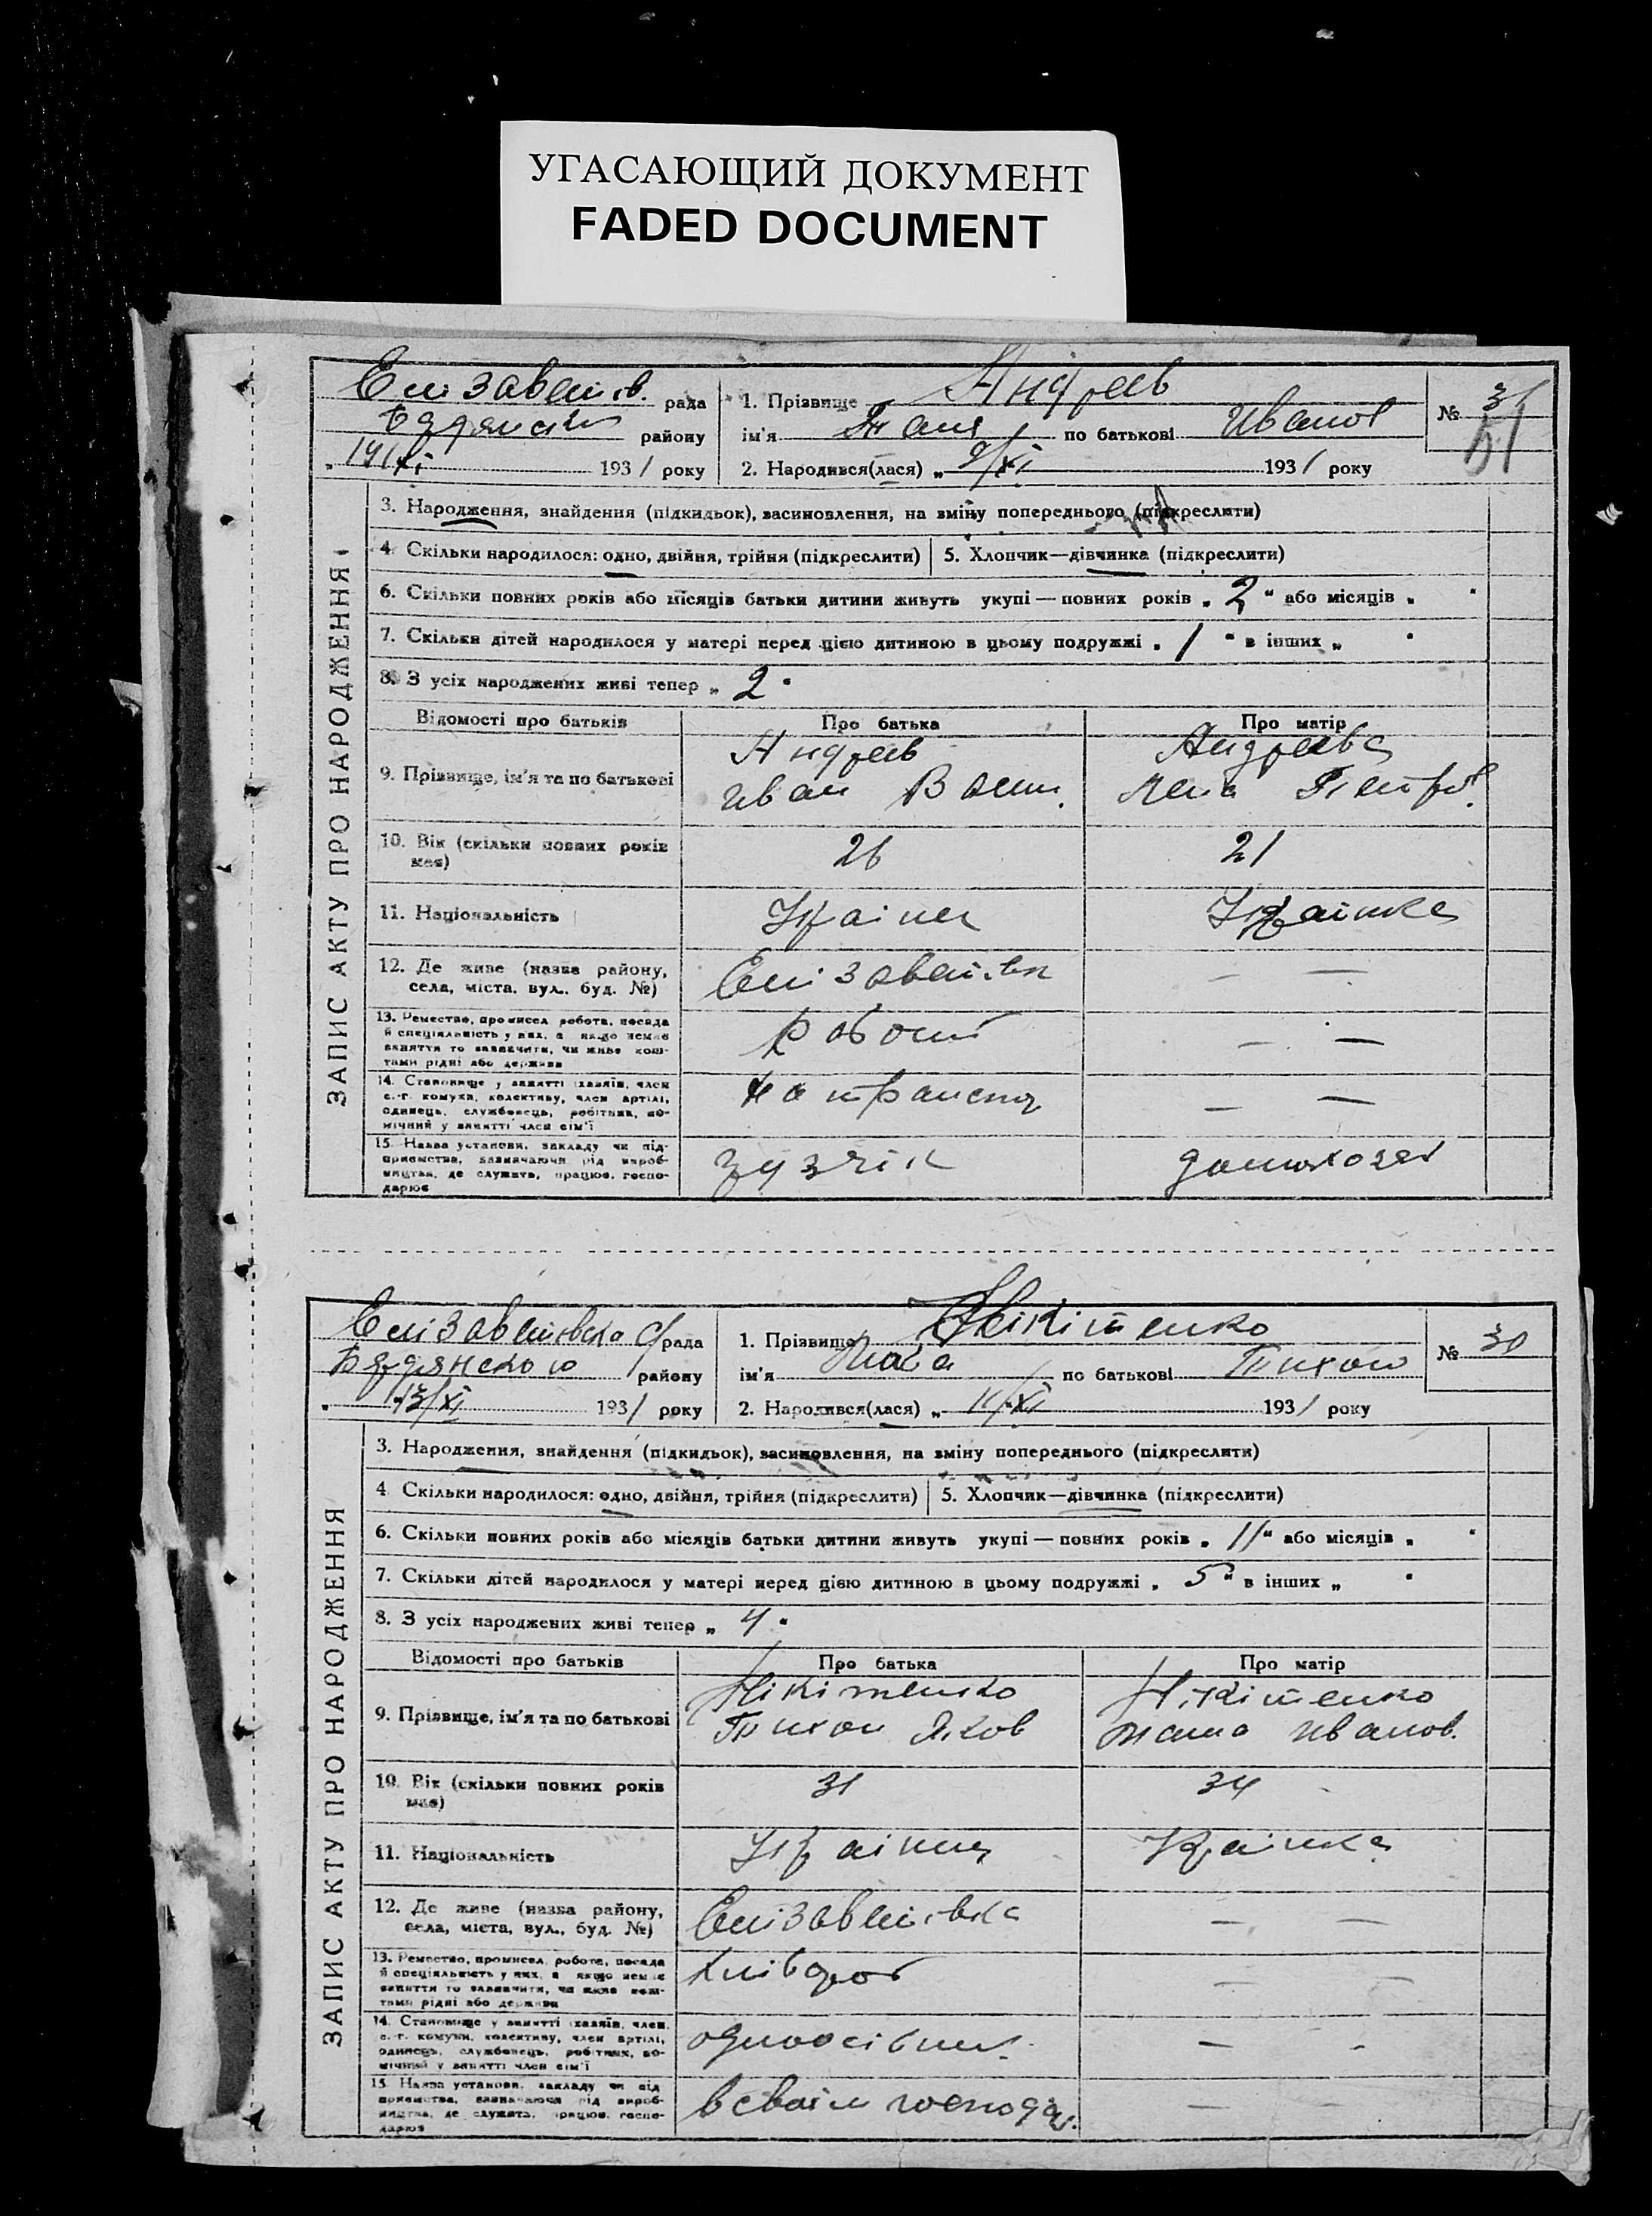 УГАСАЮЩИЙ ДОКУМЕНТ
FADED DOCUMENT
Елизаветів. рада
району
14/XI 1931 року
1. Прізвище Андреев
ім'я Таня по батькові Иванов
2. Народився(лася) „ 9/XI 1931 року
№ 31
51
ЗАПИС АКТУ ПРО НАРОДЖЕННЯ
3. Народження, знайдення (підкидьок), засиновлення, на зміну попереднього (підкреслити)
4. Скільки народилося: одно, двійня, трійня (підкреслити)
5. Хлопчик—дівчинка (підкреслити)
6. Скільки повних років або місяців батьки дитини живуть укупі — повних років „ 2 “ або місяців „ “
7. Скільки дітей народилося у матері перед цією дитиною в цьому подружжі „ 1 “ в інших „ “
8. З усіх народжених живі тепер „ 2 “
Відомості про батьків Про батька Про матір
9. Прізвище, ім'я та по батькові
Андреев
Иван Васил.
Андреева
Лена Петров.
10. Вік (скільки повних років має) 26 21
11. Національність Українец Українка
12. Де живе (назва району, села, міста, вул., буд. №) Елизаветівк — —
13. Ремество, промисел, робота, посада
й спеціяльність у них, а якщо немає
заняття то зазначити, чи живе кош-
тами рідні або держави
робочий — —
14. Становище у занятті (хазяїн, член
с.-г. комуни, колективу, член артілі,
одинець, службовець, робітник, по-
мічний у занятті член сім'ї
на транспор — —
15. Назва установи, закладу чи під-
приємства, зазначаючи рід вироб-
ництва, де служить, працює, госпо-
дарює
грузчік домохозяй
Елізаветівска с/рада
Бердянского району
„ 13/XI 1931 року
1. Прізвище Нікітенко
ім'я по батькові Тихон
2. Народився(лася) „ 11/XI 1931 року
№ 30
ЗАПИС АКТУ ПРО НАРОДЖЕННЯ
3. Народження, знайдення (підкидьок), засиновлення, на зміну попереднього (підкреслити)
4 Скільки народилося: одно, двійня, трійня (підкреслити)
5. Хлопчик—дівчинка (підкреслити)
6. Скільки повних років або місяців батьки дитини живуть укупі — повних років „ 11 “ або місяців „ “
7. Скільки дітей народилося у матері перед цією дитиною в цьому подружжі „ 5 “ в інших „ “
8. З усіх народжених живі тепер „ 4 “
Відомості про батьків Про батька Про матір
9. Прізвище, ім'я та по батькові
Нікітенко
Тихон Яков
Нікітенко
Иванов.
10. Вік (скільки повних років має) 31 34
11. Національність Українец Українка
12. Де живе (назва району, села, міста, вул., буд. №) Елізаветівка — —
13. Ремество, промисел, робота, посада
й спеціяльність у них, а якщо немає
заняття то зазначити, чи живе кош-
тами рідні або держави
хлібороб — —
14. Становище у занятті (хазяїн, член
с.-г. комуни, колективу, член артілі,
одинець, службовець, робітник, по-
мічний у занятті член сім'ї
одноосібник — -
15. Назва установи, закладу чи під-
приємства, зазначаючи рід вироб-
ництва, де служить, працює, госпо-
дарює
в своїм господар. — —